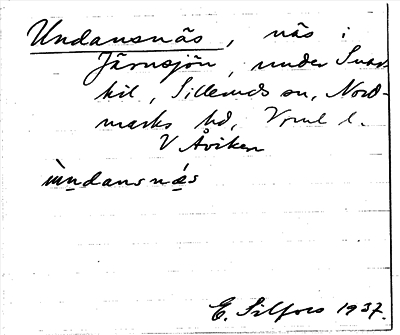 Undansnäs, näs i
Järnsjön, under Svar-
kil, Sillerud sn, Nord-
marks hd, Vrml l.
V Åviken
ùndansnä́s
E. Silfors 1937.